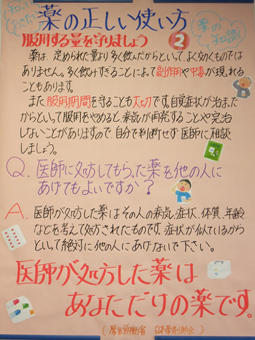 薬の正しい使い方
服用する量を守りましょう 2
薬は、定められた量より多く飲んだからといって、よく効くものでは
ありません。多く飲みすぎることによって副作用や中毒が現れる
こともあります。
また服用期間を守ることも大切です。自覚症状が治まった
からといって服用をやめると、病気が再発することや完治
しないことがありますので、自分で判断せず医師に相談
しましょう。
Q. 医師に処方してもらった薬を他の人に
あげてもよいですか?
A. 医師が処方した薬はその人の病気、症状、体質、年齢
などを考えて処方されたものです。症状が似ているから
といって絶対に他の人にあげないで下さい。
医師が処方した薬は
あなただけの薬です。